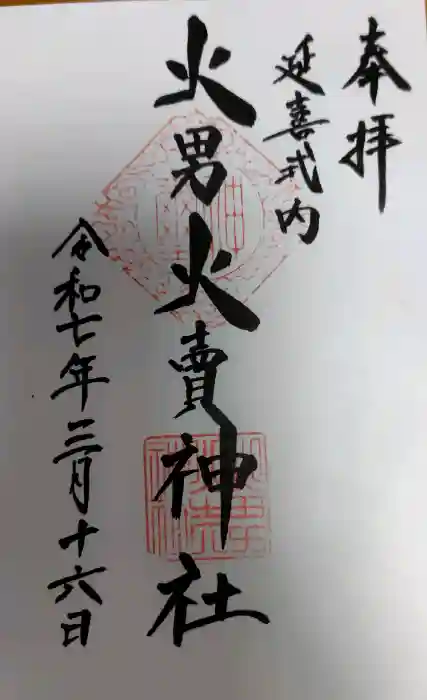 奉拝
延喜式内
火男火賣神社
令和七年三月十六日